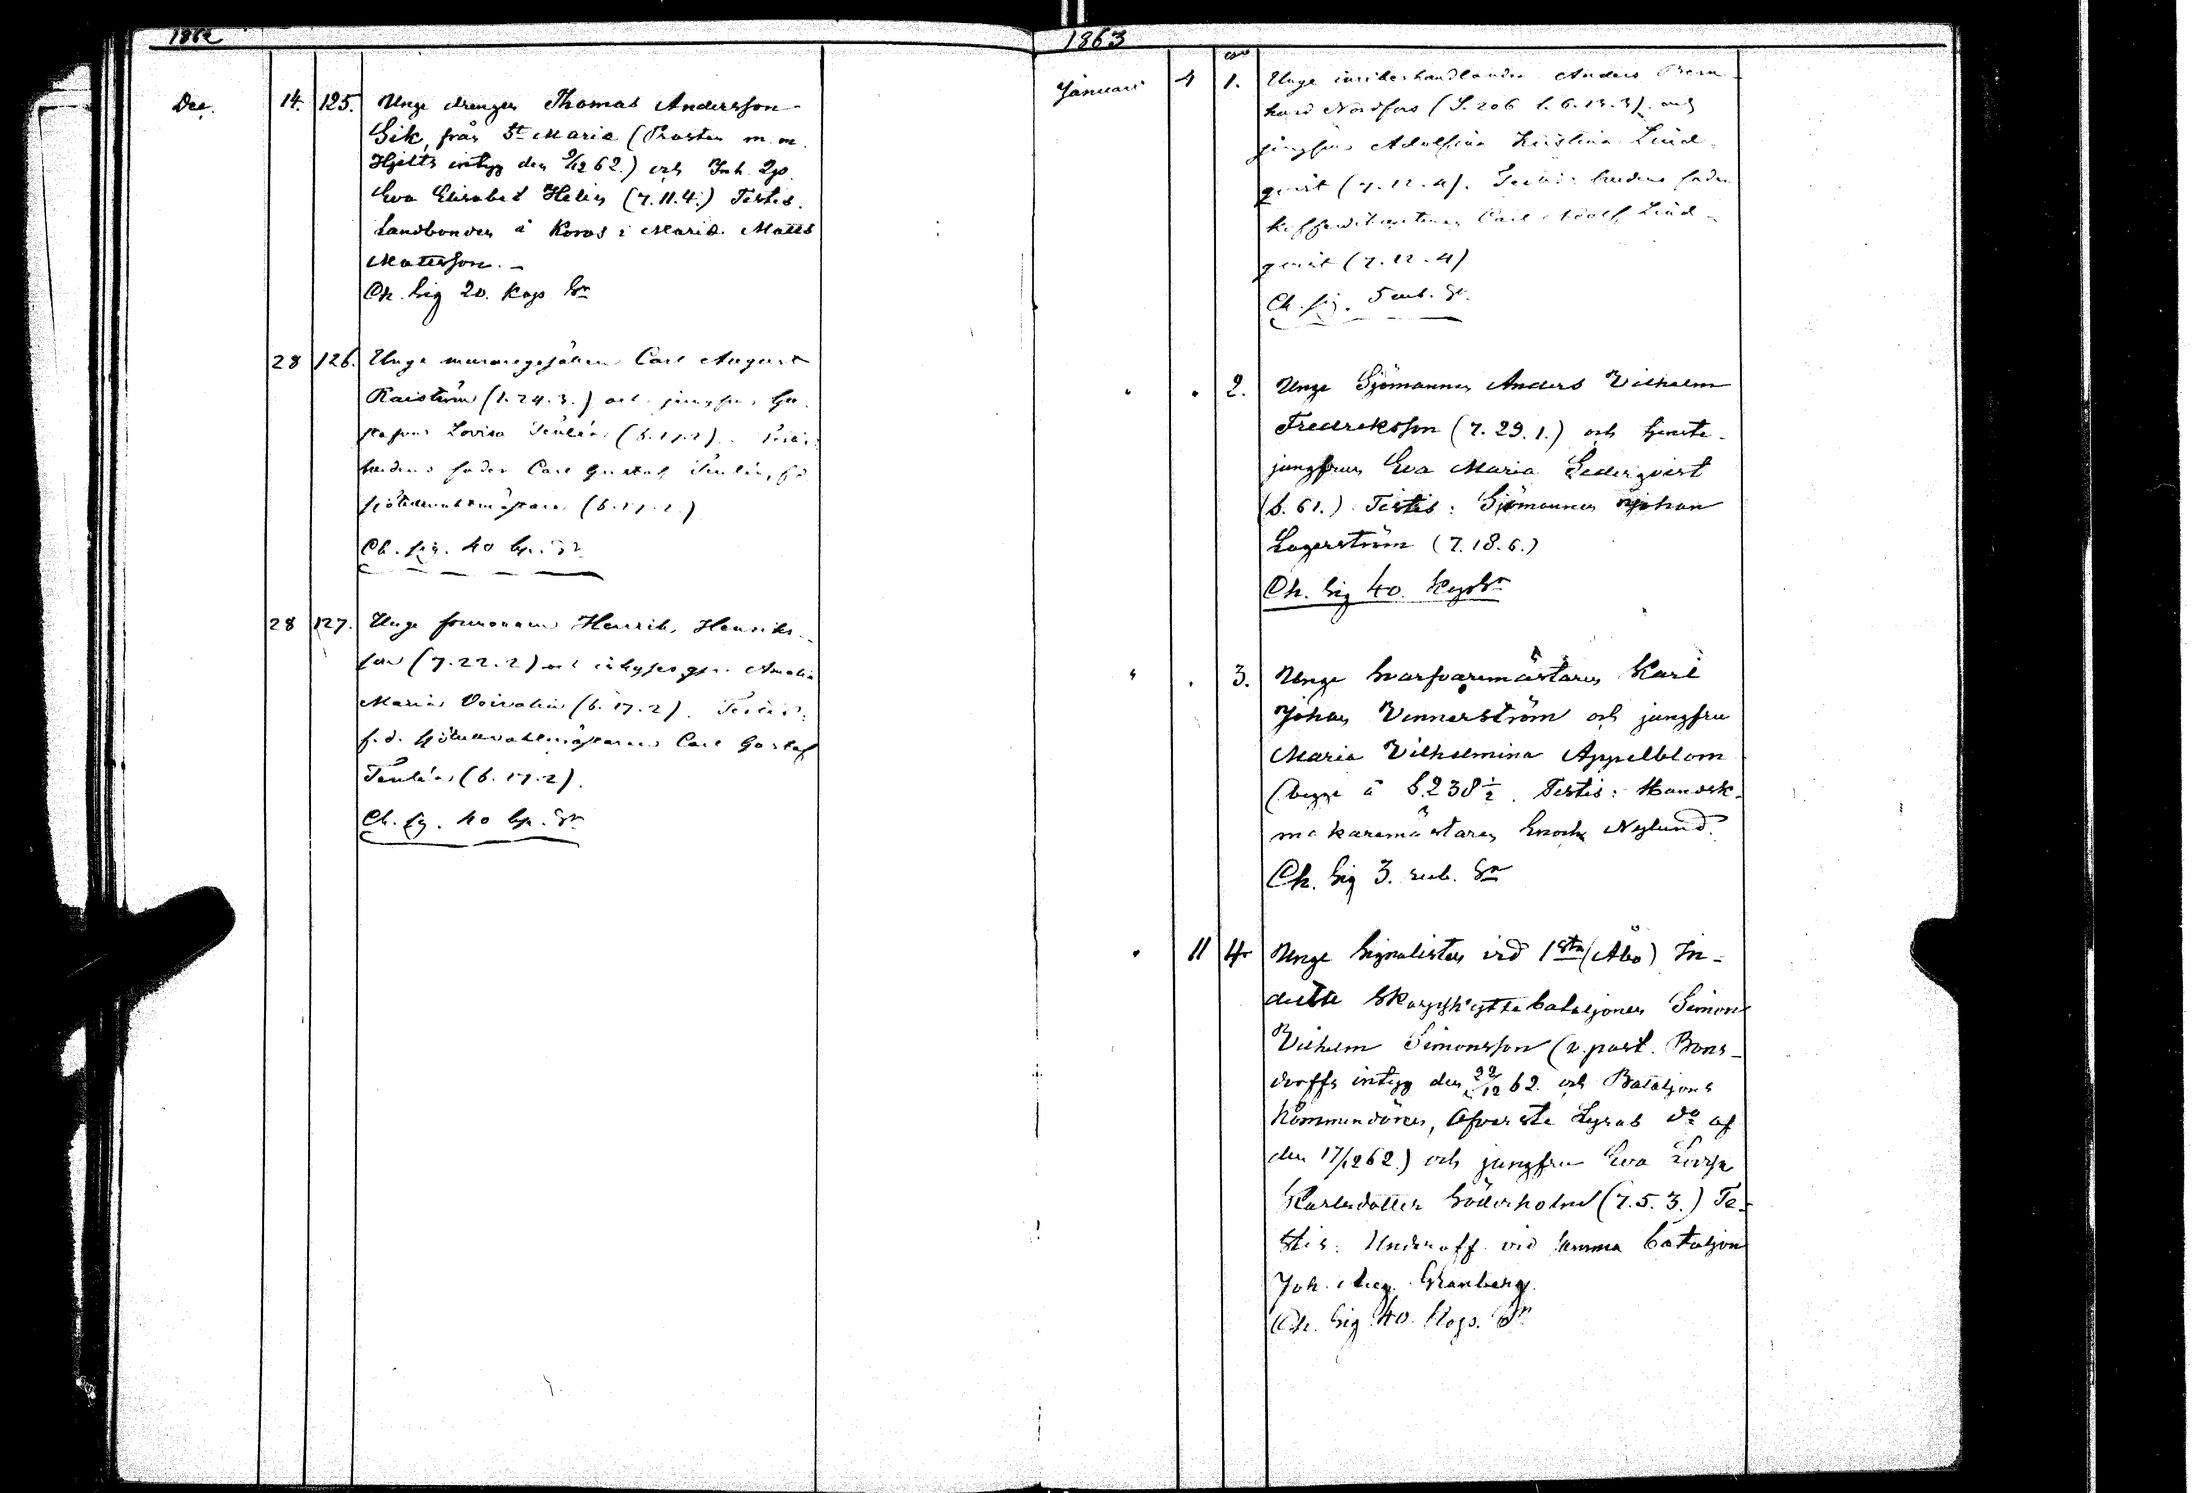 1862
Dec. 14. 125. Unge drengen Thomas Andersson
Sik, från St Maria (Prosten m. m.
Hjelts intyg den 9/12 62.) och Inh. Qp.
Eva Elisabet Helin (7.11.4.) Testis.
Landbonden å Koros i Marie Matts
Mattsson.
Ch. Sig 20. Kop. Sr
28 126. Unge muraregesällen Carl August
Raiström (1.24.3.) och jungfru Gu-
stafva Lovisa Tenlén (6.17.2). Testis:
brudens fader Carl Gustaf Tenlén, f.d
(6.17.2)
Ch. sig. 40 kp. Sr
28 127. Unge formannen Henrik Henriks-
son (7.22.2) och inhyses qp. Amalia
Maria Voivalin (6.17.2). Testis:
f.d. Carl Gustaf
Tenlén (6.17.2).
Ch. sig. 40 kp. Sr
1863
Januari 4 1. Unge Anders Bern-
hard Nordfors (S. 206 l. 6.13.3). och
jungfru Adolfina Kristina Lind-
qvist (7.12.4). Testis: brudens fader
Carl Adolf Lind-
qvist (7.12.4)
Ch. sig. 5 rub. Sr.
" . 2. Unge Sjömannen Anders Vilhelm
Fredriksson (7.29.1.) och tjenste-
jungfrun Eva Maria Sederqvist
(6.61.) Testis: Sjömannen Johan
Lagerström (7.18.6.)
Ch. Sig 40. Kop Sr
" . 3. Unge Svarfvaremästaren Karl
Johan Vennerström och jungfru
Maria Vilhelmina Appelblom
(begge å S. 238 1/2. Testis: Handsk-
makaremästaren Enock Nylund.
Ch. Sig 3. rub. Sr
" 11 4 Unge Signalisten vid 1sta (Åbo) In-
delta Skarpskyttebataljonen Simon
Vilhelm Simonsson (v. past. Bons-
dorffs intyg den 22/12 62. och Bataljons
Kommendören, Öfverste do af
den 17/12 62.) och jungfru Eva Lovisa
Karlsdotter Söderholm (7.5.3.) Te-
stis: Underoff. vid samma bataljon
Joh. Aug. Granberg.
Ch. Sig 40. Kop. Sr